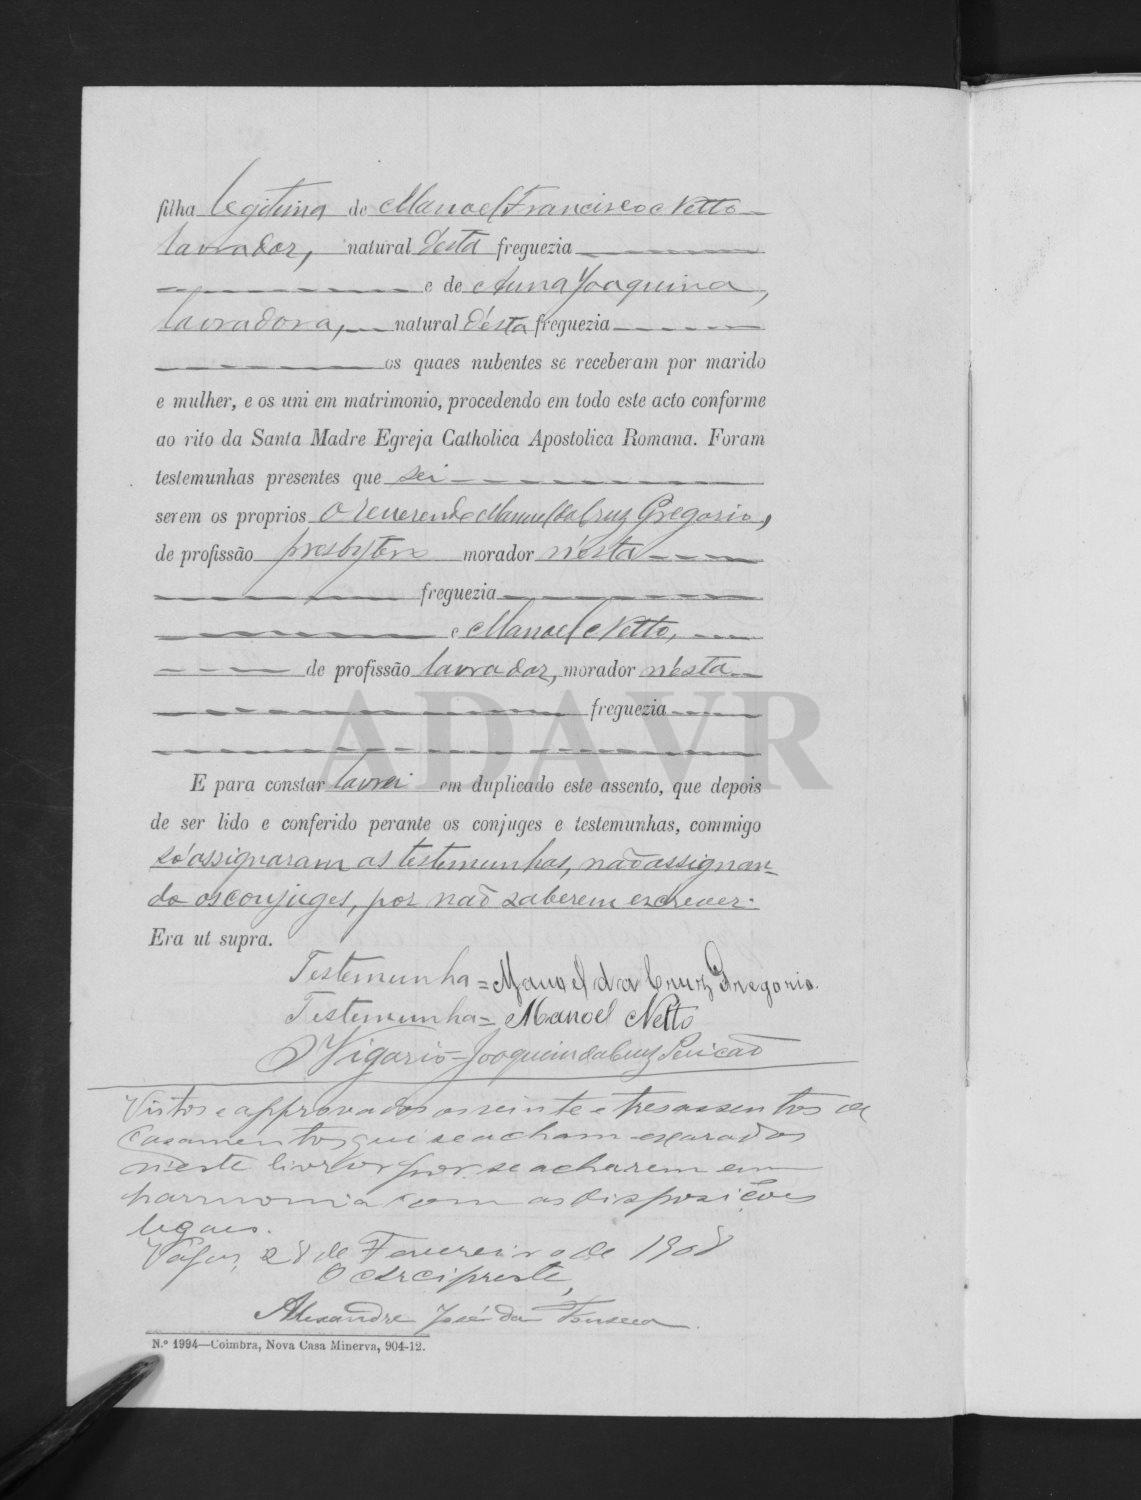 filha legitima de Manoel Francisco Netto
lavrador, natural d'esta freguezia
e de Anna Joaquina,
lavradora, natural d'esta freguezia
os quaes nubentes se receberam por marido
e mulher, e os uni em matrimonio, procedendo em todo este acto conforme
ao rito da Santa Madre Egreja Catholica Apostolica Romana. Foram
testemunhas presentes que sei
serem os proprios o reverendo Manuel da Cruz Gregorio,
de profissão presbytero morador n'esta
freguezia
e Manoel Netto,
de profissão lavrador, morador n'esta
freguezia
ADAVR
E para constar lavrei em duplicado este assento, que depois
de ser lido e conferido perante os conjuges e testemunhas, commigo
só assignaram as testemunhas, não assignan=
do os conjuges, por não saberem escrever.
Era ut supra.
Testemunha = Manoel da Cruz Gregorio.
Testemunha = Manoel Netto
O Vigario = Joaquim da Cruz Pericão
Vistos e approvados os vinte e tres assentos de
Casamentos que se acham exarados
n'este livro por se acharem em
harmonia com as disposições
legaes.
Vagos, 28 de Fevereiro de 1908
O Arcipreste,
Alexandre José da Fonseca.
N.º 1994—Coimbra, Nova Casa Minerva, 904-12.